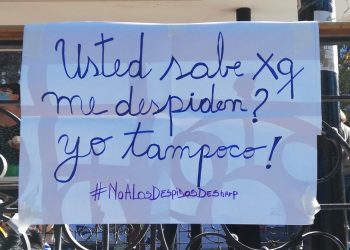 Usted sabe xq
me despiden?
yo tampoco!